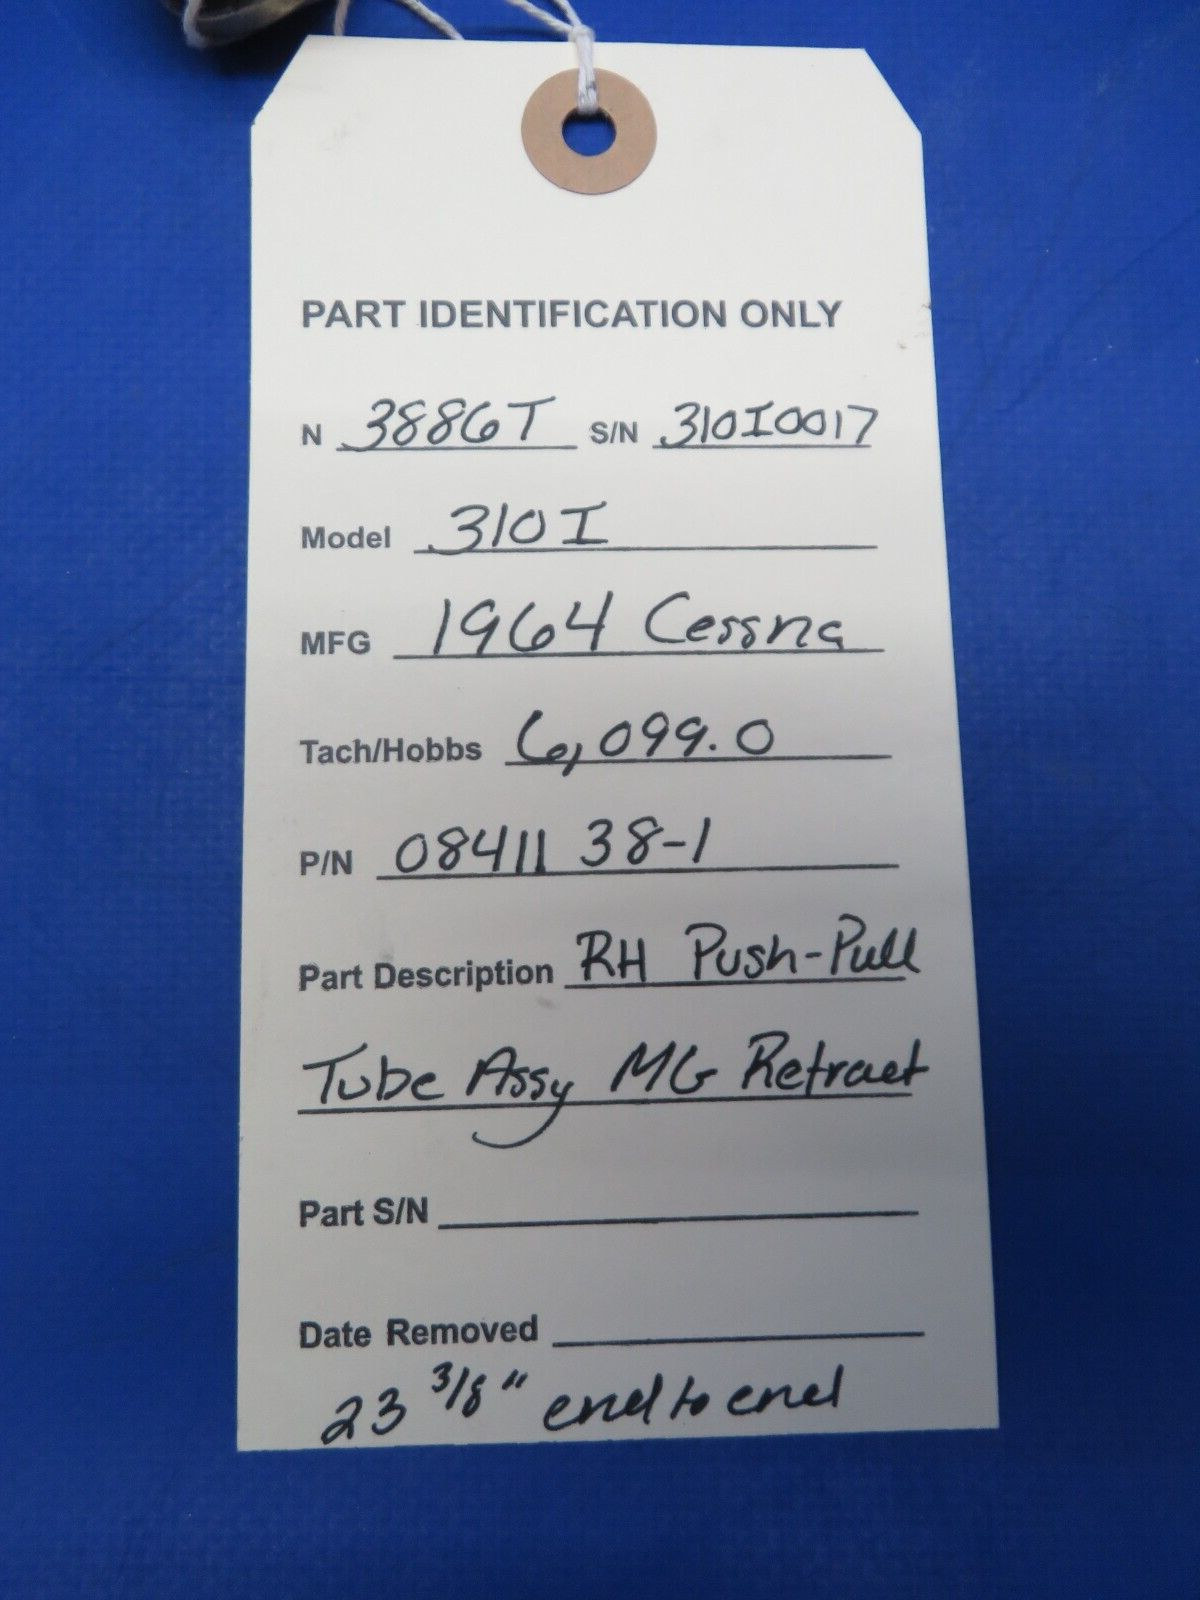 PART IDENTIFICATION ONLY
N 3886T S/N 310I0017
Model 310I
MFG 1964 Cessna
Tach/Hobbs 6,099.0
P/N 08411 38-1
Part Description RH Push-Pull
Tube Assy MG Retract
Part S/N
Date Removed
23 3/8" end to end